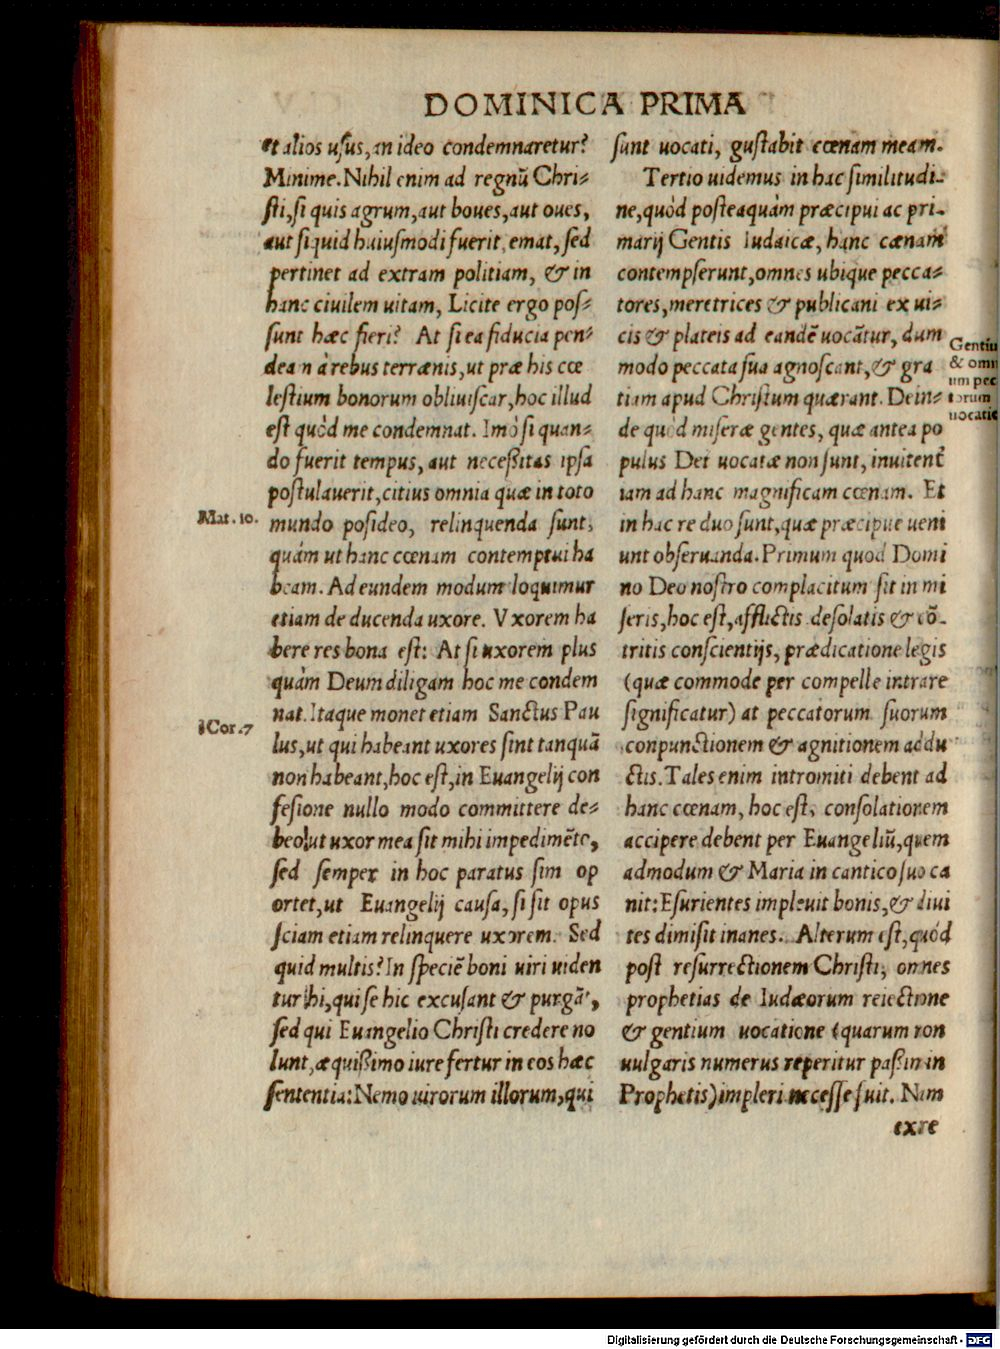 DOMINICA PRIMA
et alios usus, an ideo condemnaretur?
Minime. Nihil enim ad regnũ Chri⸗
sti, si quis agrum, aut boues, aut oues,
aut si quid huiusmodi fuerit, emat, sed
pertinet ad extram politiam, & in
hanc ciuilem uitam, Licite ergo pos⸗
sunt hæc fieri? At si ea fiducia pen⸗
dea n à rebus terrænis, ut præ his cœ
lestium bonorum obliuiscar, hoc illud
est quòd me condemnat. Imò si quan⸗
do fuerit tempus, aut necessitas ipsa
postulauerit, citius omnia quæ in toto
Mat. 10.
mundo posideo, relinquenda sunt,
quám ut hanc cœnam contemptui ha
beam. Ad eundem modum loquimur
etiam de ducenda uxore. Vxorem ha
bere res bona est: At si uxorem plus
quàm Deum diligam hoc me condem
nat. Itaque monet etiam Sanctus Pau
1 Cor. 7
lus, ut qui habeant uxores sint tanquã
non habeant, hoc est, in Euangelij con
fesione nullo modo committere de⸗
beo, ut uxor mea sit mihi impedimẽto,
sed semper in hoc paratus sim op
ortet, ut Euangelij causa, si sit opus
sciam etiam relinquere uxorem. Sed
quid multis? In speciẽ boni uiri uiden
tur hi, qui se hic excusant & purgãt,
sed qui Euangelio Christi credere no
lunt, æquissimo iure fertur in eos hæc
sententia: Nemo uirorum illorum, qui
sunt uocati, gustabit cœnam meam.
Tertio uidemus in hac similitudi⸗
ne, quòd posteaquàm præcipui ac pri⸗
marij Gentis Iudaicæ, hanc cænam
contempserunt, omnes ubique pecca⸗
tores, meretrices & publicani ex ui⸗
cis & plateis ad eandẽ uocãtur, dum
modo peccata sua agnoscant, & gra
tiam apud Christum quærant. Dein⸗
Gentiu
& omn
ium pec
torum
uocatio
de quòd miseræ gentes, quæ antea po
pulus Dei uocatæ non sunt, inuitent̃
iam ad hanc magnificam cœnam. Et
in hac re duo sunt, quæ præcipue ueni
unt obseruanda. Primum quod Domi
no Deo nostro complacitum sit in mi
seris, hoc est, afflictis desolatis & cõ⸗
tritis conscientijs, prædicatione legis
(quæ commode per compelle intrare
significatur) at peccatorum suorum
conpunctionem & agnitionem addu
ctis. Tales enim intromiti debent ad
hanc cœnam, hoc est, consolationem
accipere debent per Euangeliũ, quem
admodum & Maria in cantico suo ca
nit: Esurientes impleuit bonis, & diui
tes dimisit inanes. Alterum est, quòd
post resurrectionem Christi, omnes
prophetias de Iudæorum reiectione
& gentium uocatione (quarum non
uulgaris numerus reperitur passim in
Prophetis) impleri necesse fuit. Nam
exre
Digitalisierung gefördert durch die Deutsche Forschungsgemeinschaft - DFG